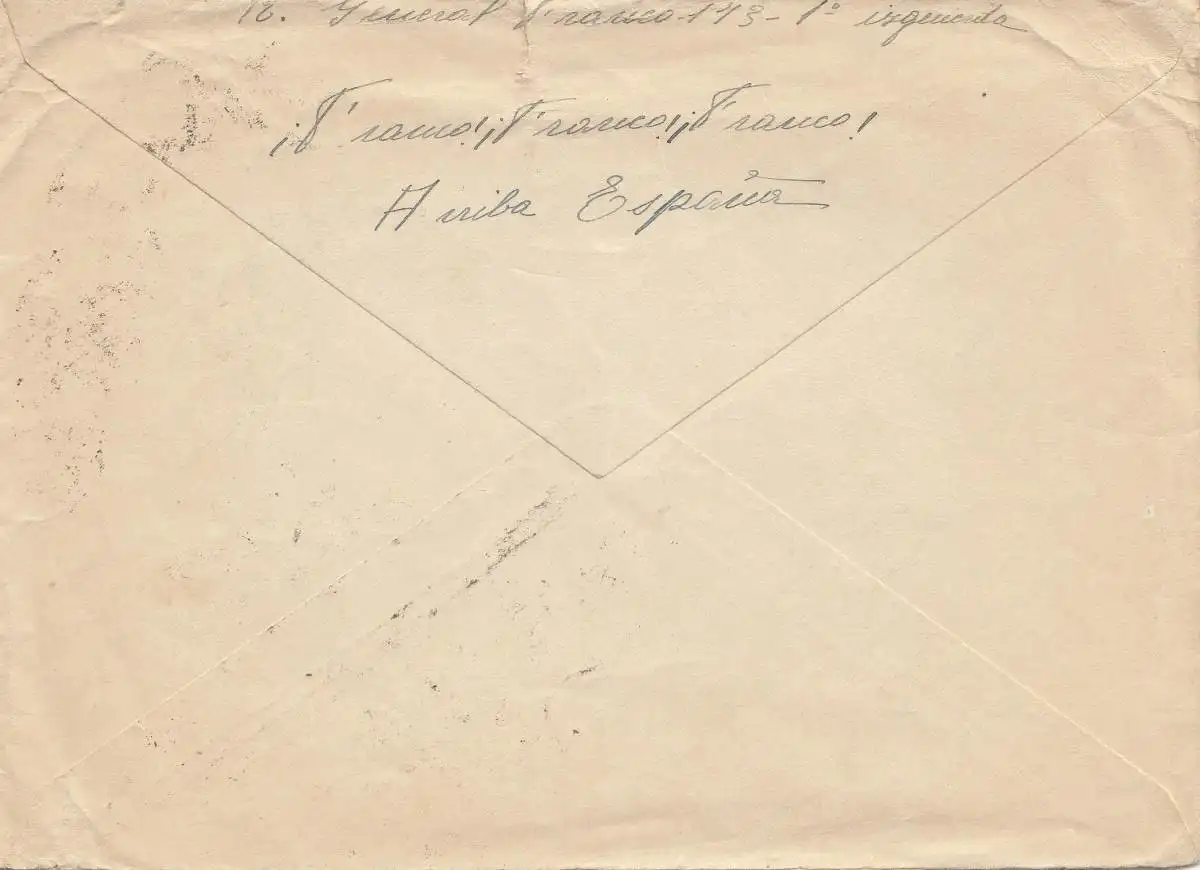 R. General Franco-173-1º izquierda
¡Franco!¡Franco!¡Franco!
Arriba España